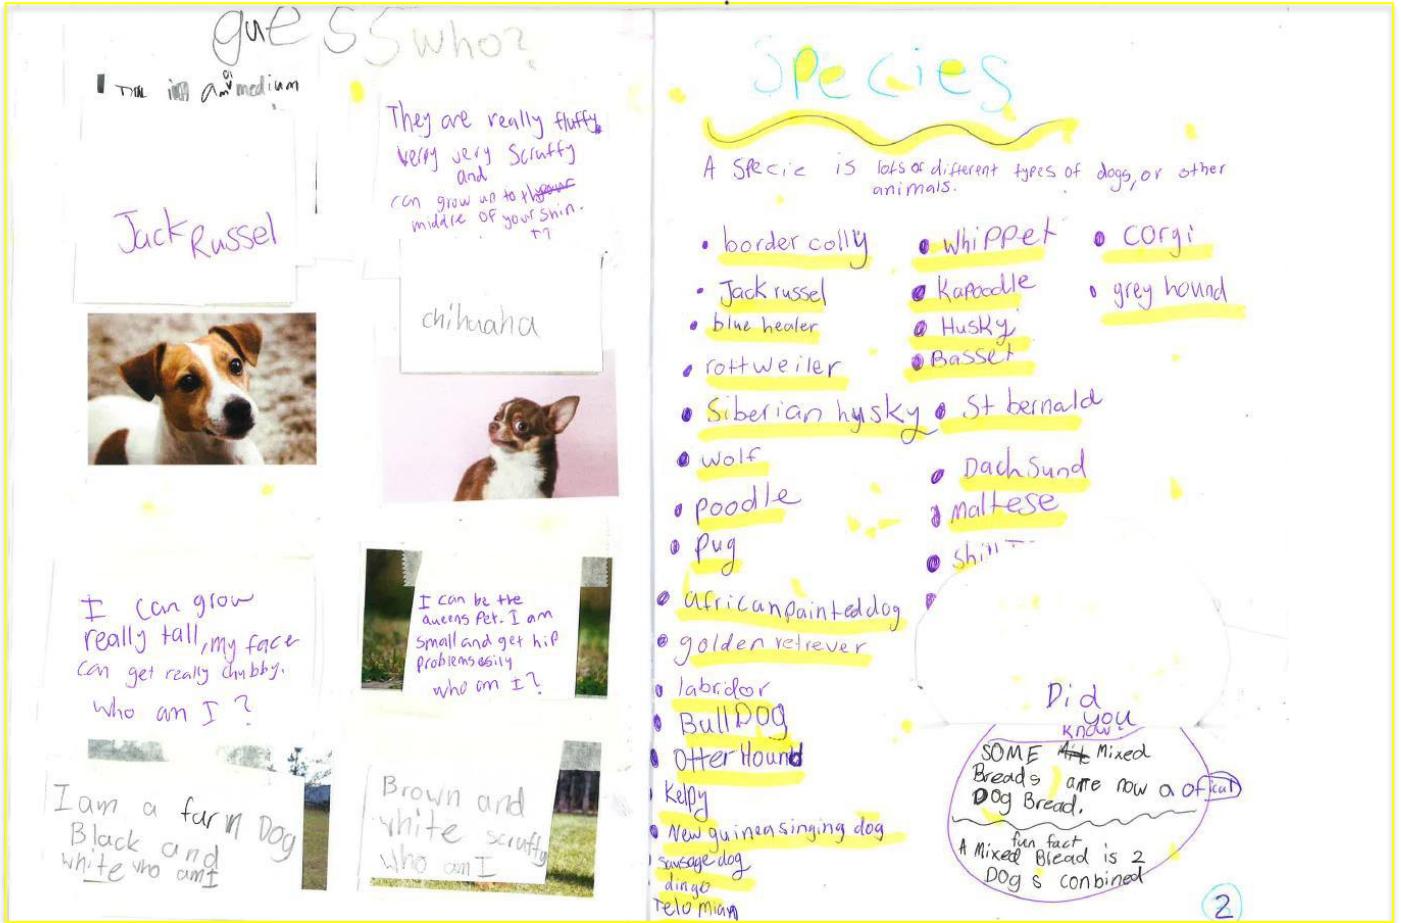 guess who?
medium
Jack Russel
They are really fluffy,
verry very Scruffy
and
can grow up to
middle of your shin.
chihuaha
I can grow
really tall, my face
can get really chubby.
who am I?
I can be the
queens Pet. I am
small and get hip
problems easily
who am I?
I am a farm Dog
Black and
white who am I
Brown and
white scruffy
who am I
Species
A Specie is lots of different types of dogs, or other
animals.
• border colly
• Jack russel
• blue healer
• rottweiler
• Siberian hysky
• wolf
• poodle
• Pug
• african painted dog
• golden retrever
• labridor
• Bull DOG
• Otter Hound
Kelpy
• New guinea singing dog
sausage dog
dingo
Telomian
• Whippet
• Kapoodle
• Husky
• Basset
• St bernald
• Dachsund
• maltese
• Corgi
• grey hound
Did
you
know?
SOME Mixed
Breads are now a of
DOg Bread.
fun fact
A Mixed Bread is 2
DOg s conbined
2